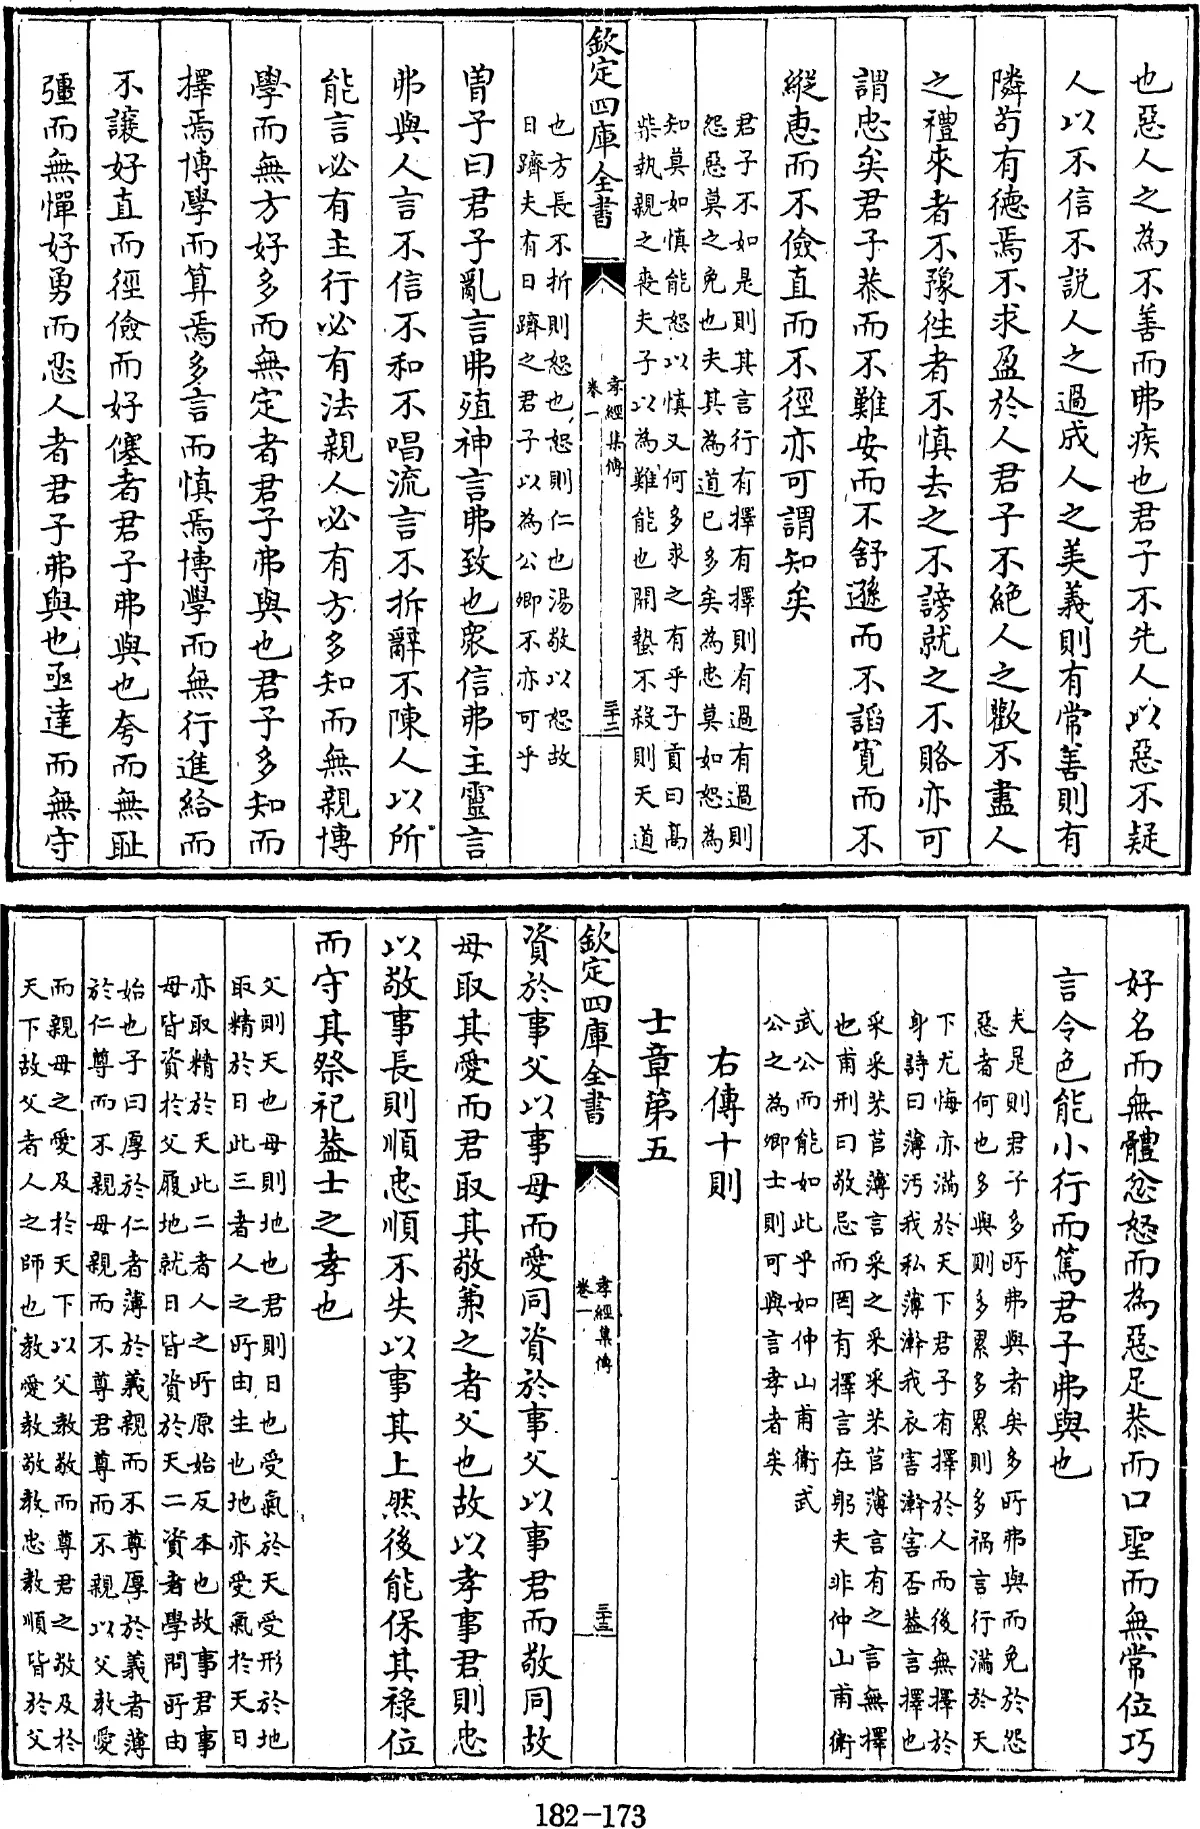 也惡人之為不善而弗疾也君子不先人以惡不疑
人以不信不說人之過成人之美義則有常善則有
隣苟有德焉不求盈於人君子不絶人之歡不盡人
之禮來者不豫徃者不慎去之不謗就之不賂亦可
謂忠矣君子恭而不難安而不舒遜而不謟寛而不
縱惠而不儉直而不徑亦可謂知矣
君子不如是則其言行有擇有擇則有過有過則
怨惡莫之免也夫其為道已多矣為忠莫如恕為
知莫如慎能恕以慎又何多求之有乎子貢曰髙
柴執親之喪夫子以為難能也開蟄不殺則天道
欽定四庫全書
孝經集傳
卷一
三十二
也方長不折則恕也恕則仁也湯敬以恕故
日躋夫有日躋之君子以為公卿不亦可乎
曽子曰君子亂言弗殖神言弗致也衆信弗主靈言
弗與人言不信不和不唱流言不折辭不陳人以所
能言必有主行必有法親人必有方多知而無親博
學而無方好多而無定者君子弗與也君子多知而
擇焉博學而算焉多言而慎焉博學而無行進給而
不讓好直而徑儉而好僿者君子弗與也夸而無耻
彊而無憚好勇而忍人者君子弗與也亟達而無守
好名而無體忿怒而為惡足恭而口聖而無常位巧
言令色能小行而篤君子弗與也
夫是則君子多所弗與者矣多所弗與而免於怨
惡者何也多與則多累多累則多禍言行滿於天
下尤悔亦滿於天下君子有擇於人而後無擇於
身詩曰薄汚我私薄澣我衣害澣害否葢言擇也
采采芣苢薄言采之采采芣苢薄言有之言無擇
也甫刑曰敬忌而罔有擇言在躬夫非仲山甫衛
武公而能如此乎如仲山甫衛武
公之為卿士則可與言孝者矣
右傳十則
士章第五
欽定四庫全書
孝經集傳
卷一
三十三
資於事父以事母而愛同資於事父以事君而敬同故
母取其愛而君取其敬兼之者父也故以孝事君則忠
以敬事長則順忠順不失以事其上然後能保其祿位
而守其祭祀葢士之孝也
父則天也母則地也君則日也受氣於天受形於地
取精於日此三者人之所由生也地亦受氣於天日
亦取精於天此二者人之所原始反本也故事君事
母皆資於父履地就日皆資於天二資者學問所由
始也子曰厚於仁者薄於義親而不尊厚於義者薄
於仁尊而不親母親而不尊君尊而不親以父教愛
而親母之愛及於天下以父教敬而尊君之敬及於
天下故父者人之師也教愛教敬教忠教順皆於父
182-173